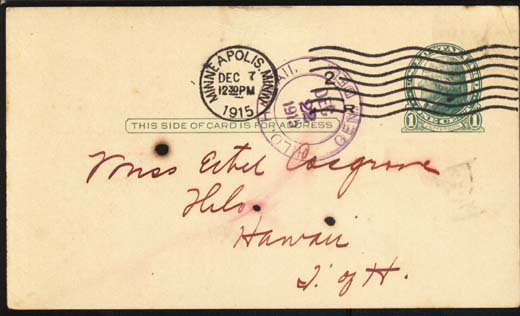 MINNEAPOLIS, MINN.
DEC 7
12 30 PM
1915
2
HILO
DEC
22
1915
GEN
1
1
THIS SIDE OF CARD IS FOR ADDRESS
Miss Ethel Cosgrove
Hilo
Hawaii
T. of H.